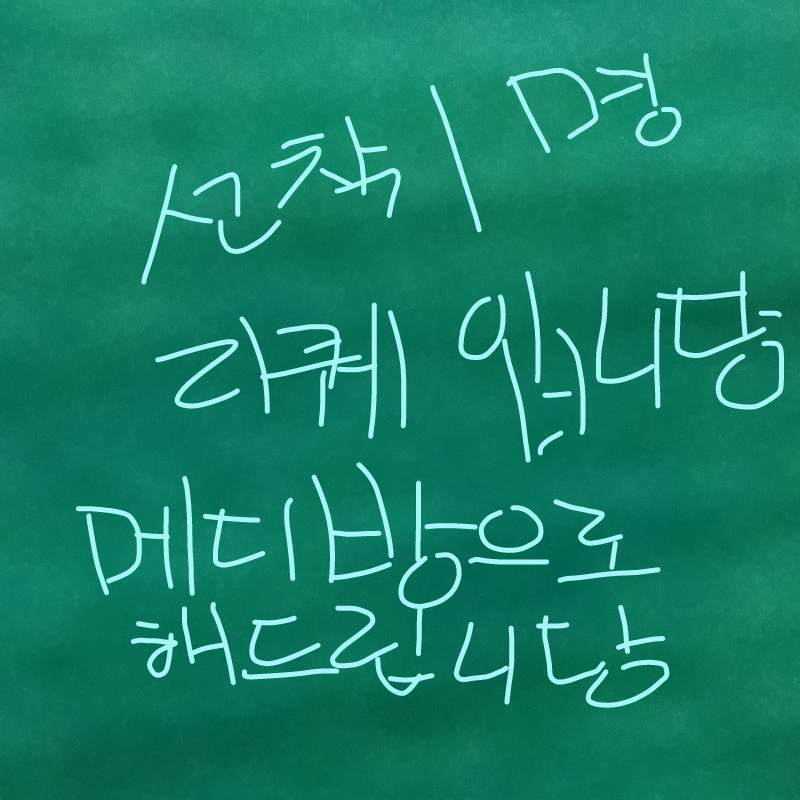 선착 1 명
라퀘 입니당
메디방으로
해드립니당